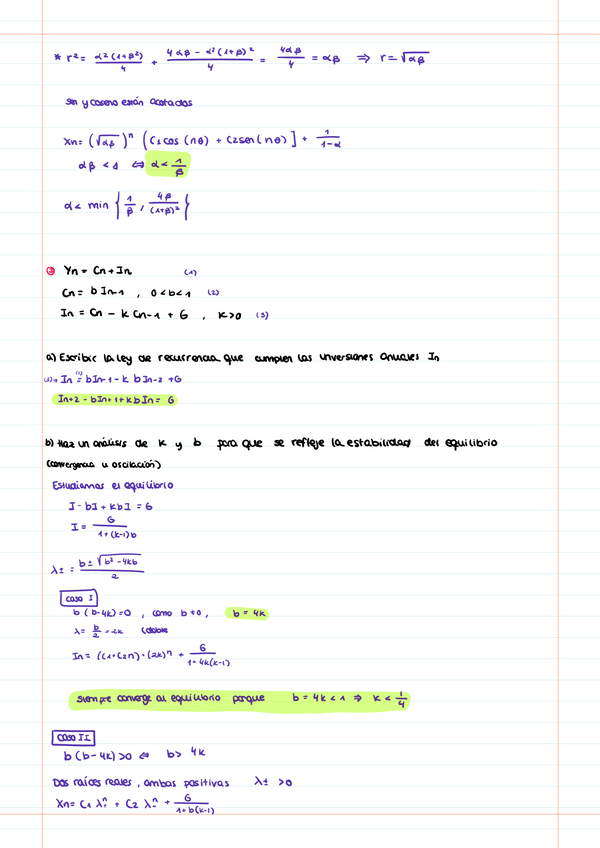 * r² = α²(1+β²)/4 + 4αβ - α²(1+β)²/4 = 4αβ/4 = αβ ⇒ r = √αβ
sen y coseno están acotadas
Xn = (√αβ)ⁿ (C1 cos (nθ) + C2 sen(nθ)] + 1/1-α
αβ < 1 ⇔ α < 1/β
α < min { 1/β , 4β/(1+β)² {
② Yn = Cn + In (1)
Cn = b In-1 , 0<b<1 (2)
In = Cn - k Cn-1 + G , k>0 (3)
a) Escribir la ley de recurrencia que cumplen las inversiones anuales In
In = b In-1 - k b In-2 + G
In+2 - b In+1 + k b In = G
b) Haz un análisis de k y b para que se refleje la estabilidad del equilibrio
(convergencia u oscilación)
Estudiamos el equilibrio
I - bI + kbI = G
I = G/1+(k-1)b
λ± = b ± √b² - 4kb/2
CASO I
b(b-4k)=0 , como b≠0 , b = 4k
λ = b/2 = 2k (doble
In = (C1+C2n)·(2k)ⁿ + G/1+4k(k-1)
siempre converge al equilibrio porque b = 4k < 1 ⇒ k < 1/4
CASO II
b(b-4k)>0 ⇔ b > 4k
Dos raíces reales, ambas positivas λ± > 0
Xn = C1 λ+ⁿ + C2 λ-ⁿ + G/1+b(k-1)